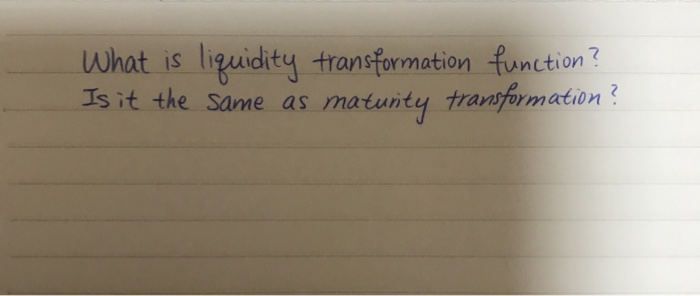 What is liquidity transformation function?
Is it the same as maturity transformation?